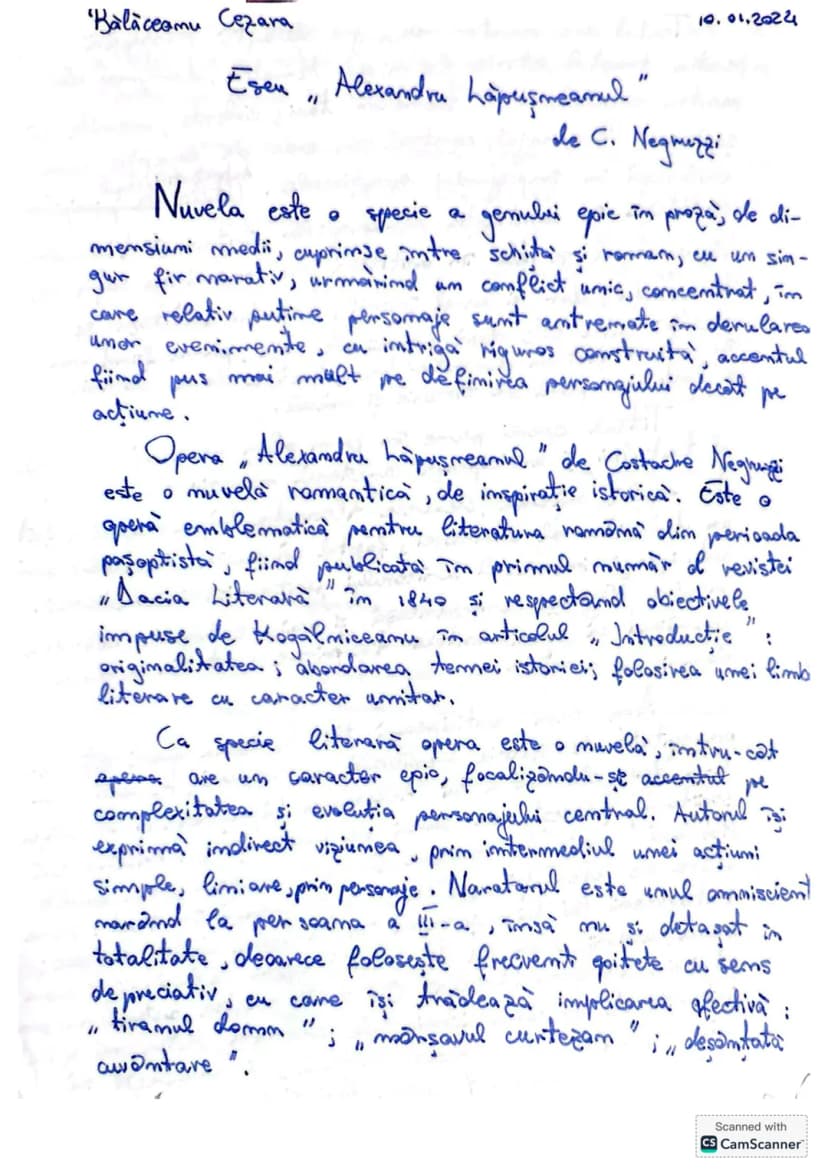 Bălăceanu Cezara 10.01.2024
Eseu „Alexandru Lăpușneanul”
de C. Negruzzi
Nuvela este o specie a genului epic în proză, de di-
mensiuni medii, cuprinse între schiță și roman, cu un sin-
gur fir narativ, urmărind un conflict unic, concentrat, în
care relativ puține personaje sunt antrenate în derularea
unor evenimente, cu intrigă riguros construită, accentul
fiind pus mai mult pe definirea personajului decât pe
acțiune.
Opera „Alexandru Lăpușneanul” de Costache Negruzzi
este o nuvelă romantică, de inspirație istorică. Este o
operă emblematică pentru literatura română din perioada
pașoptistă, fiind publicată în primul număr al revistei
„Dacia Literară” în 1840 și respectând obiectivele
impuse de Kogălniceanu în articolul „Introducție”:
originalitatea; abordarea temei istoriei; folosirea unei limb
literare cu caracter unitar.
Ca specie literară opera este o nuvelă, întru-cât
opera are un caracter epic, focalizându-se accentul pe
complexitatea și evoluția personajului central. Autorul își
exprimă indirect viziunea, prin intermediul unei acțiuni
simple, liniare, prin personaje. Naratorul este unul omniscient
narând la persoana a III-a, însă nu și detașat în
totalitate, deoarece folosește frecvent epitete cu sens
depreciativ, cu care își trădează implicarea afectivă:
„tiranul domn”; „mârșavul curtezan”; „deșănțată
cuvântare”.
Scanned with
CS CamScanner